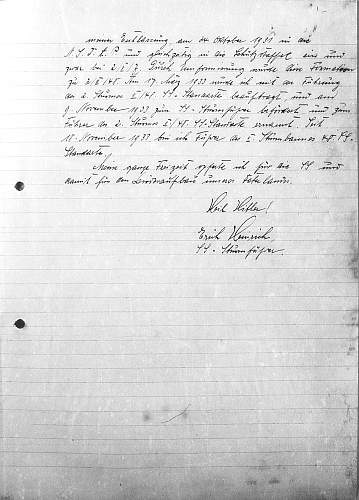 meiner Entlassung am 24. Oktober 1931 in die
N.S.D.A.P. und gleichzeitig in die Schutzstaffel ein und
zwar bei Durch Umformierung wurde diese Formation
zu 2/I/45. Am 17. März 1933 wurde ich mit der Führung
des 2. Sturmes I/45 SS-Standarte beauftragt und am
9. November 1933 zum SS-Sturmführer befördert und zum
Führer des 2. Sturms I/45. SS-Standarte ernannt. Seit
November 1933 bin ich Führer des I. Sturmbannes 45. SS-
Standarte.
Meine ganze Freizeit opferte ich für die SS und
damit für den Wiederaufbau unseres Vaterlandes.
Heil Hitler!
Erich Heinrich,
SS-Sturmführer.